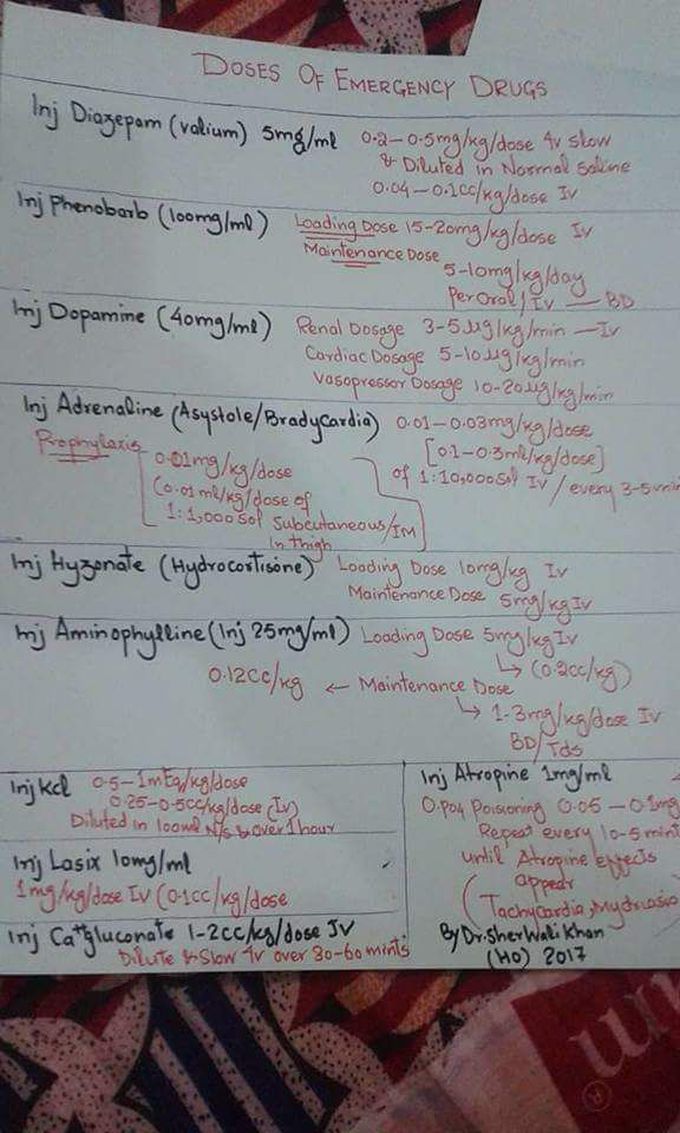 DOSES OF EMERGENCY DRUGS
Inj Diazepam (valium) 5mg/ml 0.2-0.5mg/kg/dose IV slow
& Diluted in Normal Saline
0.04-0.1cc/kg/dose Iv
Inj Phenobarb (100mg/ml) Loading Dose 15-20mg/kg/dose Iv
Maintenance Dose
5-10mg/kg/day
Per Oral/Iv — BD
Inj Dopamine (40mg/ml) Renal Dosage 3-5µg/kg/min —Iv
Cardiac Dosage 5-10µg/kg/min
Vasopressor Dosage 10-20µg/kg/min
Inj Adrenaline (Asystole/BradyCardia) 0.01-0.03mg/kg/dose
[0.1-0.3ml/kg/dose]
of 1:10,000 Sol Iv/every 3-5min
Prophylaxis
0.01mg/kg/dose
(0.01ml/kg/dose of
1:1,000 Sol Subcutaneous/IM
In thigh
Inj Hyzonate (Hydrocortisone) Loading Dose 10mg/kg Iv
Maintenance Dose 5mg/kg Iv
Inj Aminophylline (Inj 25mg/ml) Loading Dose 5mg/kg Iv
↳ (0.2cc/kg)
0.12cc/kg ← Maintenance Dose
↳ 1-3mg/kg/dose Iv
BD/Tds
Inj Kcl 0.5-1mEq/kg/dose
0.25-0.5cc/kg/dose (Iv)
Diluted in 100ml N/s & over 1 hour
Inj Lasix 10mg/ml
1mg/kg/dose IV (0.1cc/kg/dose
Inj Ca++gluconate 1-2cc/kg/dose IV
Dilute & Slow IV over 30-60 mints
Inj Atropine 1mg/ml
O.po4 Poisoning 0.05-0.1mg
Repeat every 10-5 mint
until Atropine Effects
appear
(Tachycardia, Mydriasis
By Dr. Sher Wali Khan
(HO) 2017